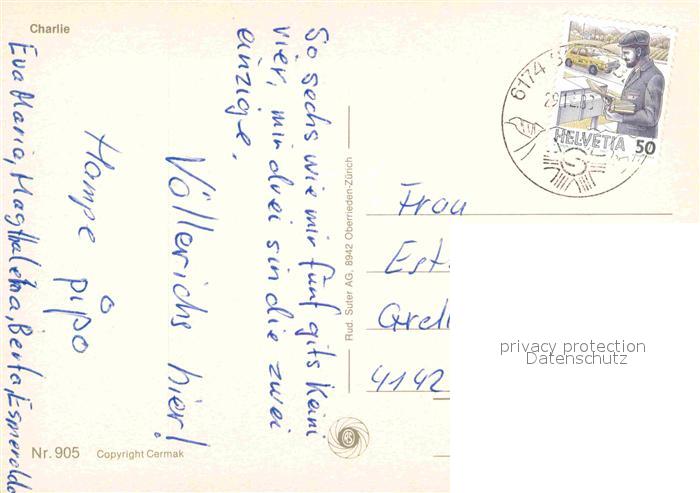 Charlie
So sechs wie mir fünf gits keini
vier, mir drei sind die zwei
einzige.
Völlerichs hier!
Hampe pipo
Eva Maria, Magthalena, Berta, Esmeralda
Nr. 905
Copyright Cermak
Rud. Suter AG, 8942 Oberrieden-Zürich
6174
HELVETIA 50
Frau
Est
Grell
4142
privacy protection
Datenschutz